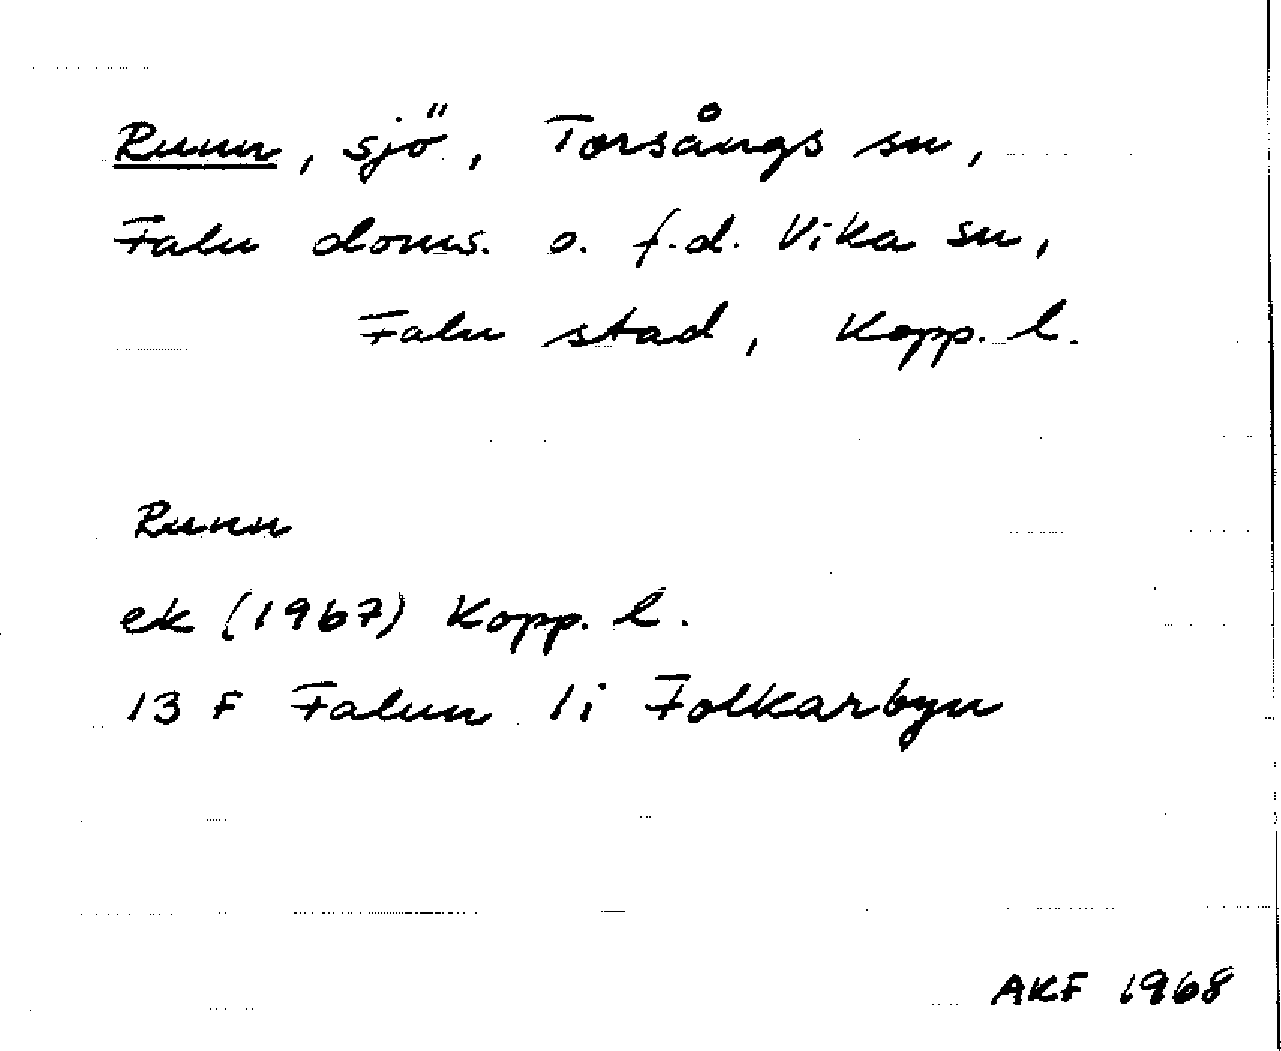 Runn, sjö, Torsångs sn,
Falu doms. o. f.d. Vika sn,
Falu stad, Kopp. l.
Runn
ek (1967) Kopp. l.
13 F Falun 1i Folkarbyn
AKF 1968